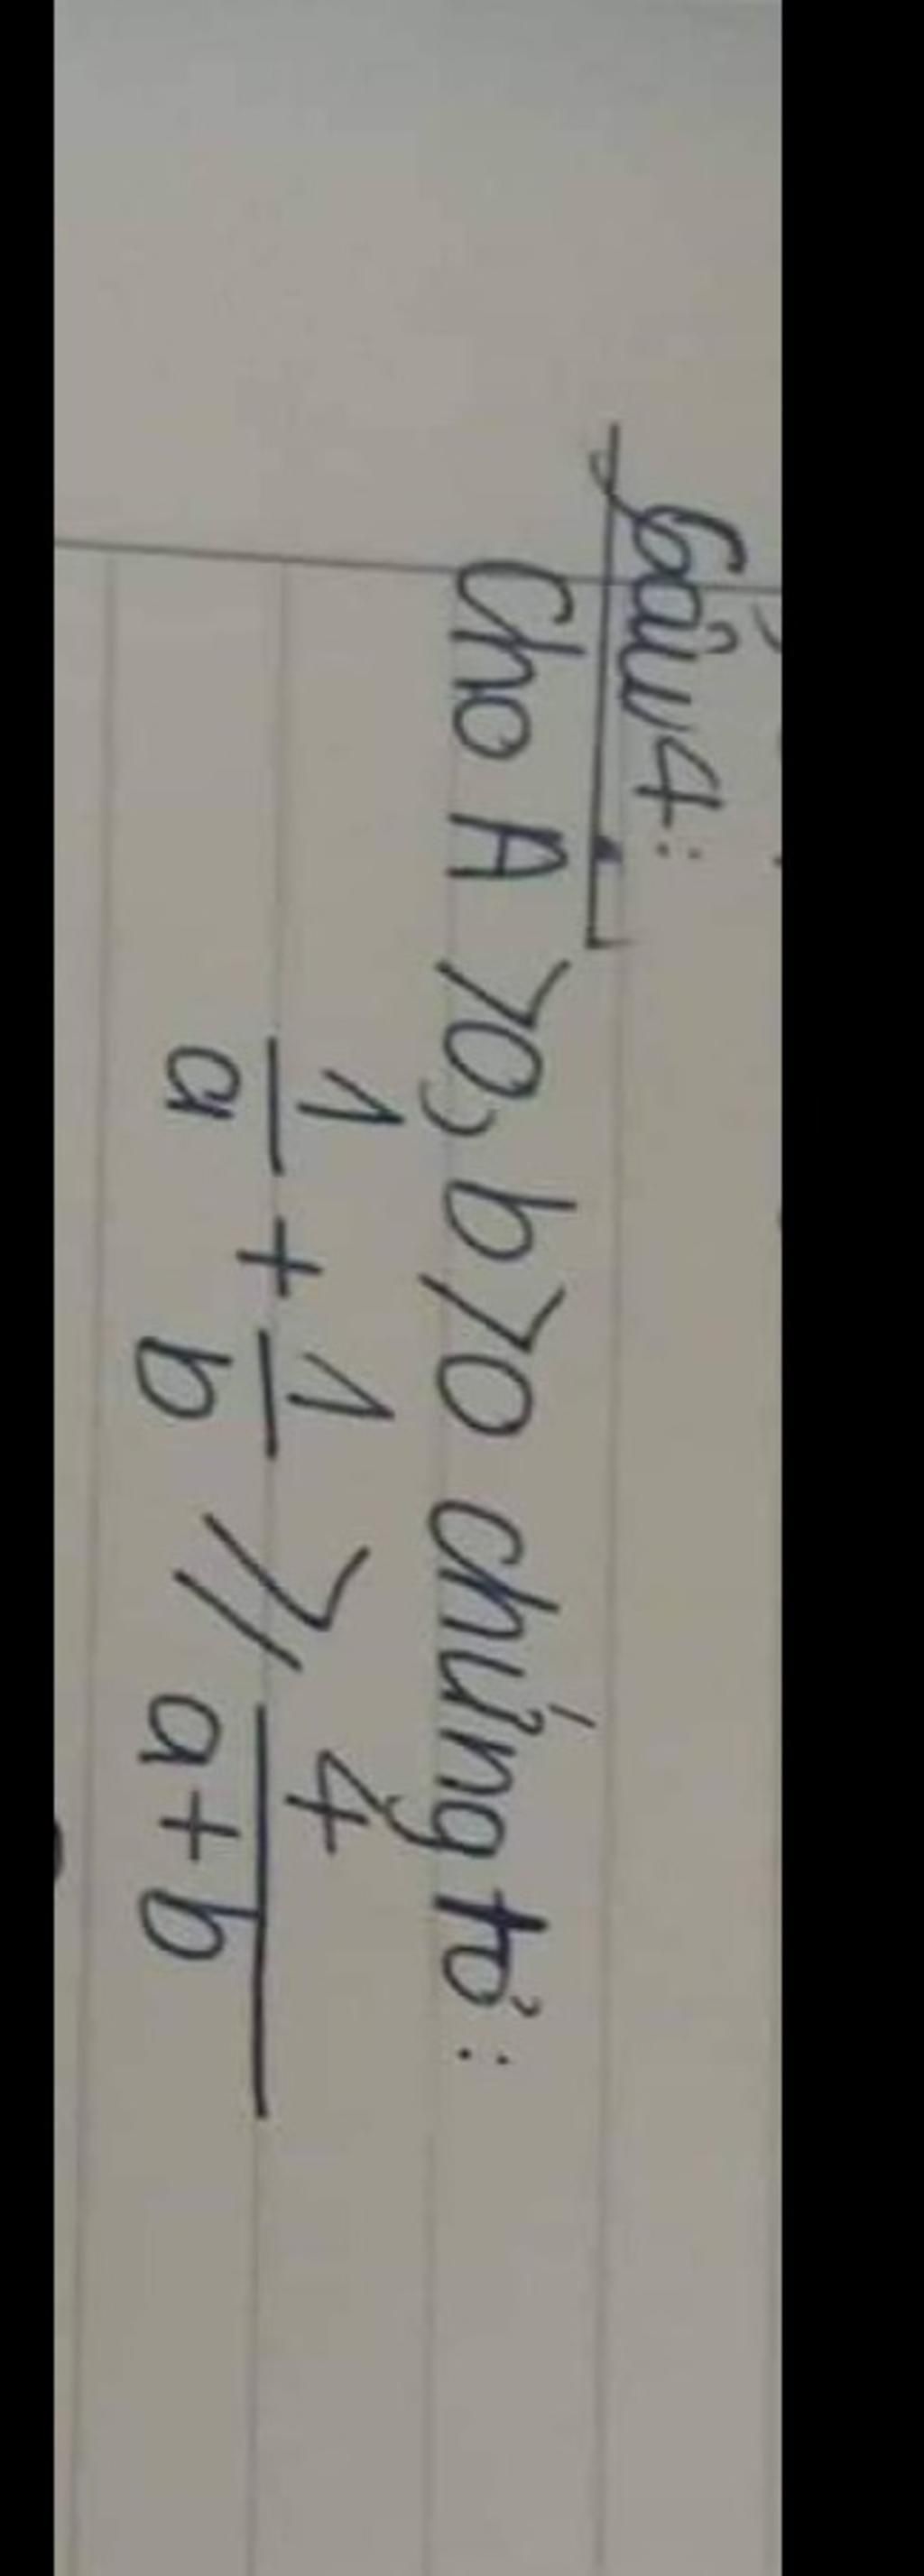 Câu 4:
Cho A >0, b >0 chứng tỏ:
1/a + 1/b ⩾ 4/a+b